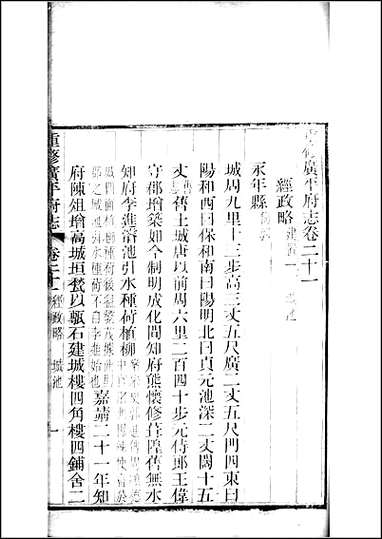 重修廣平府志卷二十一
經政略 建置一 城池
永年縣
城周九里十三步高三丈五尺廣二丈五尺門四東曰
陽和西曰保和南曰陽明北曰貞元池深二丈闊十五
丈 舊土城唐以前周六里二百四十步元侍郎王偉
守郡增築如今制明成化間知府熊懷修葺隍舊無水
知府李進濬池引水種荷植柳
嘉靖二十一年知
府陳俎增高城垣甃以甎石建城樓四角樓四鋪舍二
重修廣平府志 卷二十一 經政略 城池 一